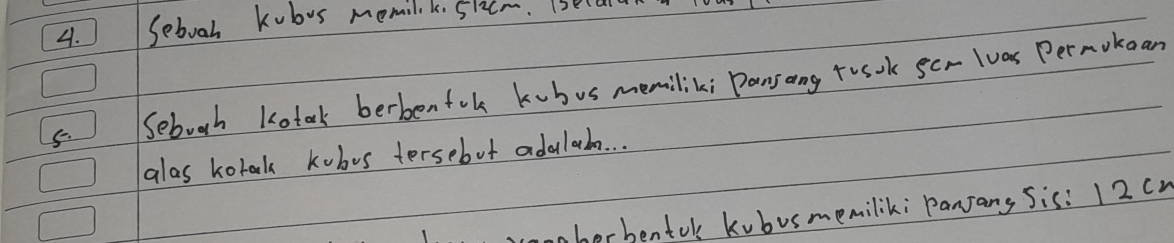 4. Sebuah kubus memiliki s12cm.
5. Sebuah kotak berbentuk kubus memiliki Panjang rusuk 5cm luas Permukaan
alas kotak kubus tersebut adalah...
berbentuk kubus memiliki Panjang Sisi 12 cm